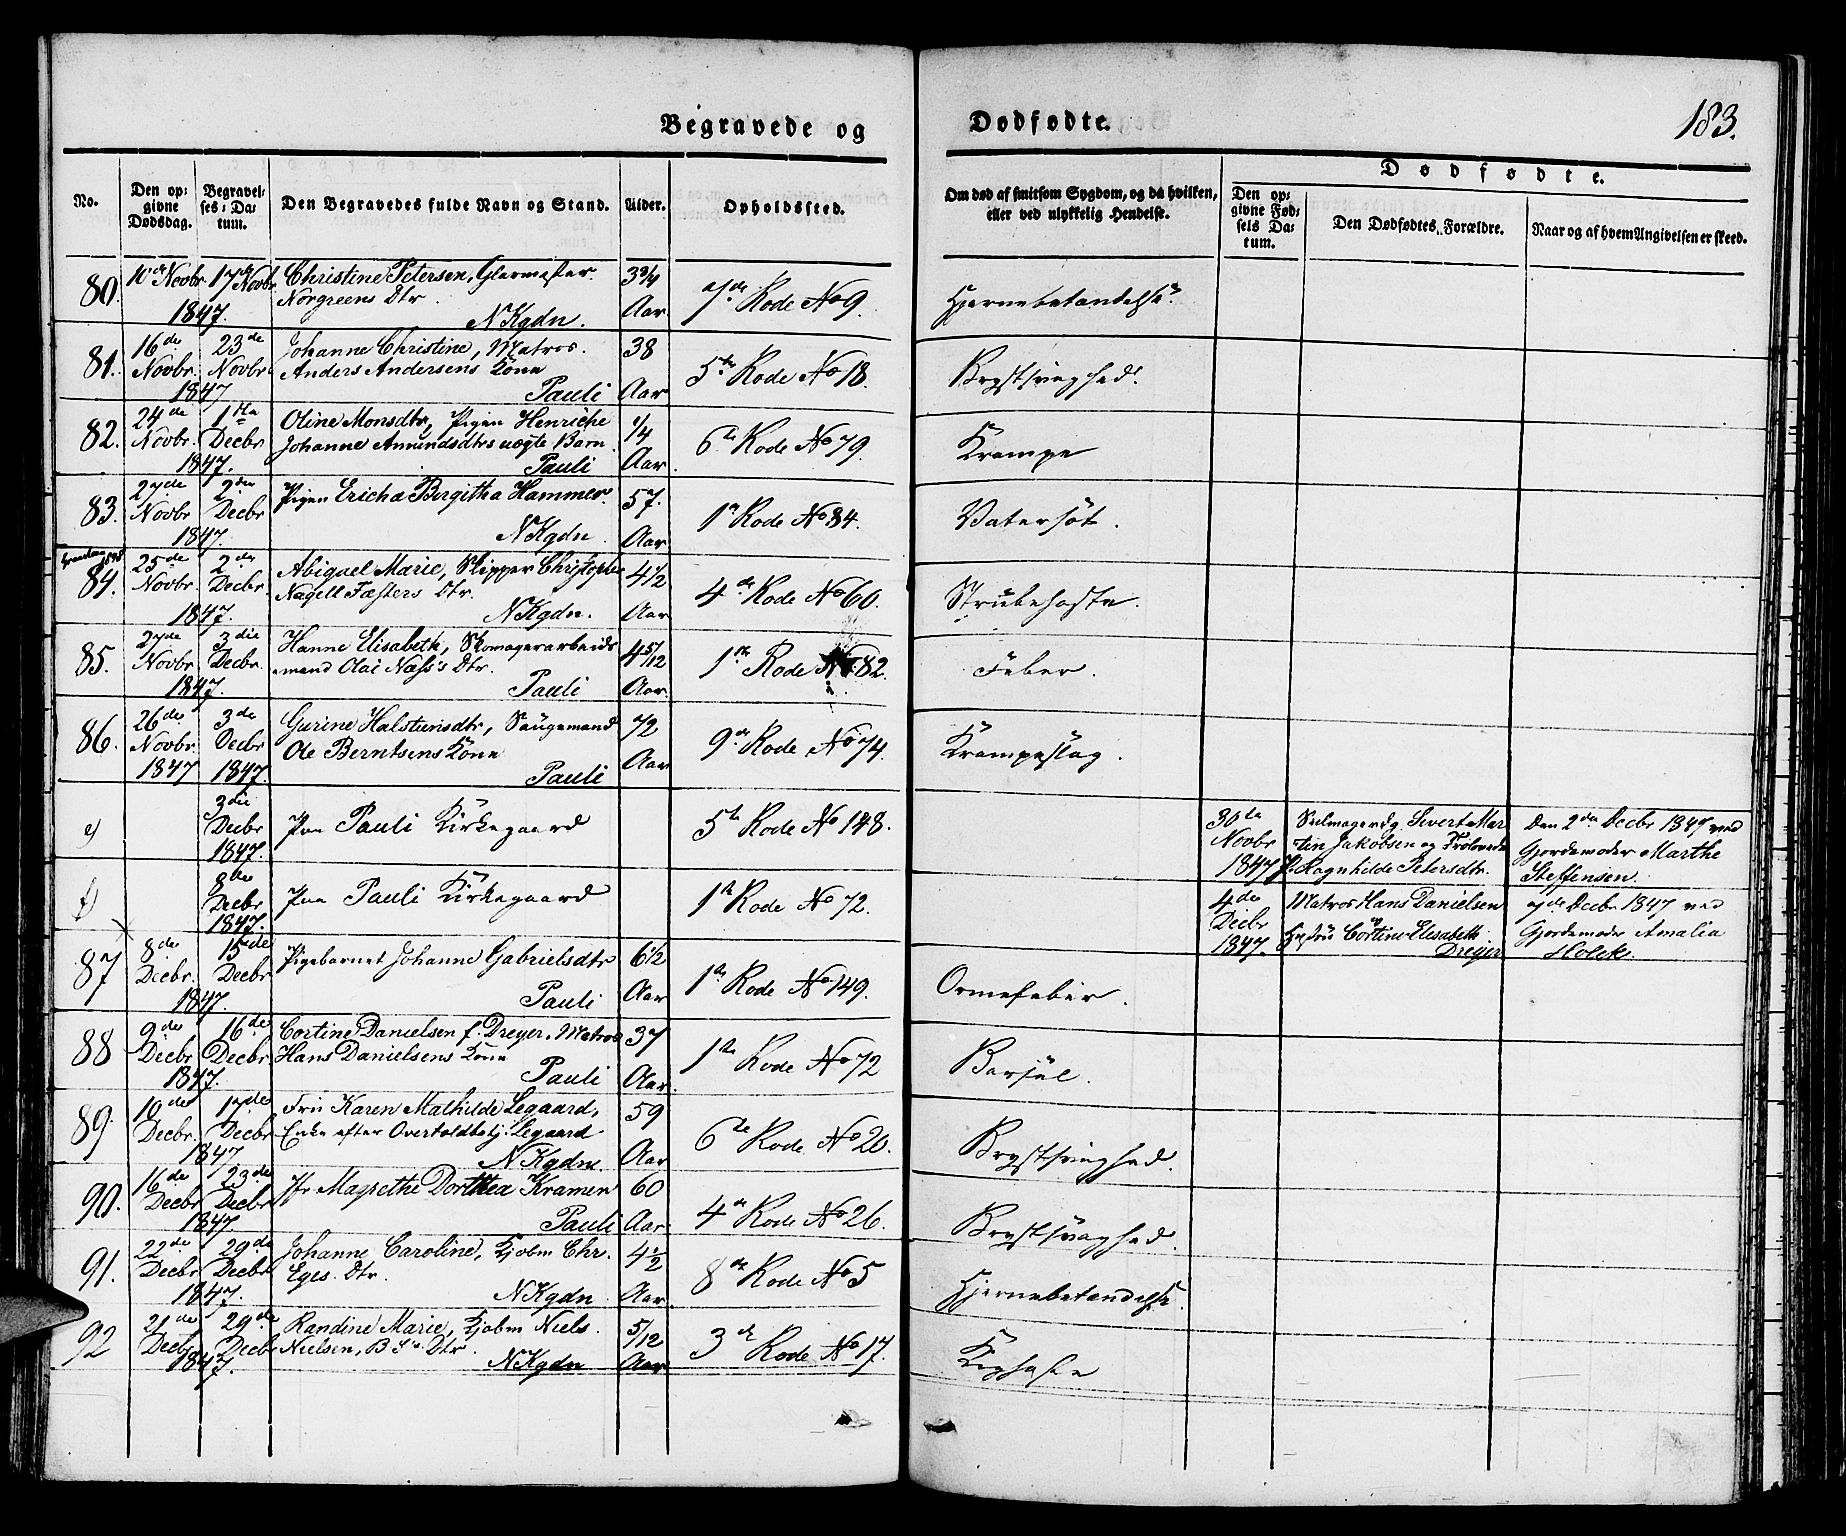 Begravede og
Dødfødte.
183.
No.
Den opgivne Dødsdag.
Begravelses-Datum.
Den Begravedes fulde Navn og Stand.
Alder.
Opholdssted.
Om død af smitsom Sygdom, og da hvilken, eller ved ulykkelig Hendelse.
Dødfødte.
Den opgivne Fødsels Datum.
Den Dødfødtes Forældre.
Naar og af hvem Angivelsen er skeed.
80. 10de Novbr 17de Novbr Christine Petersen, Glarmester 3 3/4 7de Rode No 9. Hjernebetændelse.
1847. Norgreens Dtr. NKgdn. Aar
81. 16de 23de Johanne Christine, Matros 38 5te Rode No 18. Brystsvaghed.
Novbr. Novbr Anders Andersens Kone
1847 Pauli Aar
82. 24de 1ste Oline Monsdtr, Pigen Henriche 1/4 6te Rode No 79. Krampe
Novbr. Decbr Johanne Amundsdtrs uægte Barn
1847. Pauli Aar.
83. 27de 2den Pigen Ericha Birgitha Hammer. 57. 1ste Rode No 84. Vatersot.
Novbr Decbr
1847. NKgdn. Aar
84. 25de 2den Abigael Marie, Skipper Christopher 4 1/2 4de Rode No 60. Strubehoste.
Novbr. Decbr Nagell Fæsters Dtr.
1847. NKgdn. Aar
85. 27de 3die Hanne Elisabeth, Skomagerarbeids 4 5/12 1ste Rode No 82. Feber.
Novbr. Decbr. mand Olai Næss's Dtr.
1847. Pauli Aar.
86. 26de 3die Gurine Halstensdtr, Saugemand 72 9de Rode No 74. Krampeslag.
Novbr. Decbr Ole Berntsens Kone
1847 1847. Pauli Aar
e) 3die Decbr 1847. Paa Pauli Kirkegaard 5te Rode No 148. 30te Novbr 1847
Sivert Martin Jakobsen og
Ragnhilde Petersdtr.
Den 2den Decbr 1847 ved
Gjordemoder Marthe
Steffensen.
f) 8de Decbr 1847. Paa Pauli Kirkegaard 1ste Rode No 72. 4de Decbr 1847.
Matros Hans Danielsen
og Hustru Cortine Elisabeth
Dreyer
7de Decbr 1847 ved
Gjordemoder Amalia
Holck.
87 8de 15de Pigebarnet Johanne Gabrielsdtr 6 1/2 1ste Rode No 149. Ormefeber.
Decbr. Decbr
1847. Pauli Aar
88 9de 16de Cortine Danielsen f. Dreyer. Matros 37 1ste Rode No 72 Barsel.
Decbr Decbr Hans Danielsens Kone
1847. Pauli Aar.
89. 10de 17de Fru Karen Mathilde Legaard, 59 6te Rode No 20. Brystsvaghed.
Decbr. Decbr Enke efter Overtoldbetj. Legaard
1847 NKgdn. Aar
90. 16de 23de Jfr Magrethe Dorthea Kramer 60 4de Rode No 26. Brystsvaghed.
Decbr Decbr
1847. Pauli Aar
91. 22de 29de Johanne Caroline, Kjøbm Chr. 4 1/2 8de Rode No 5 Hjernebetændelse.
Decbr Decbr Eges. Dtr.
1847. NKgdn Aar.
92 21de 29de Randine Marie, Kjøbm Niels 5/12 3de Rode No 17. Kighoste
Decbr Decbr Nielsen, B Dtr.
1847. NKgdn Aar